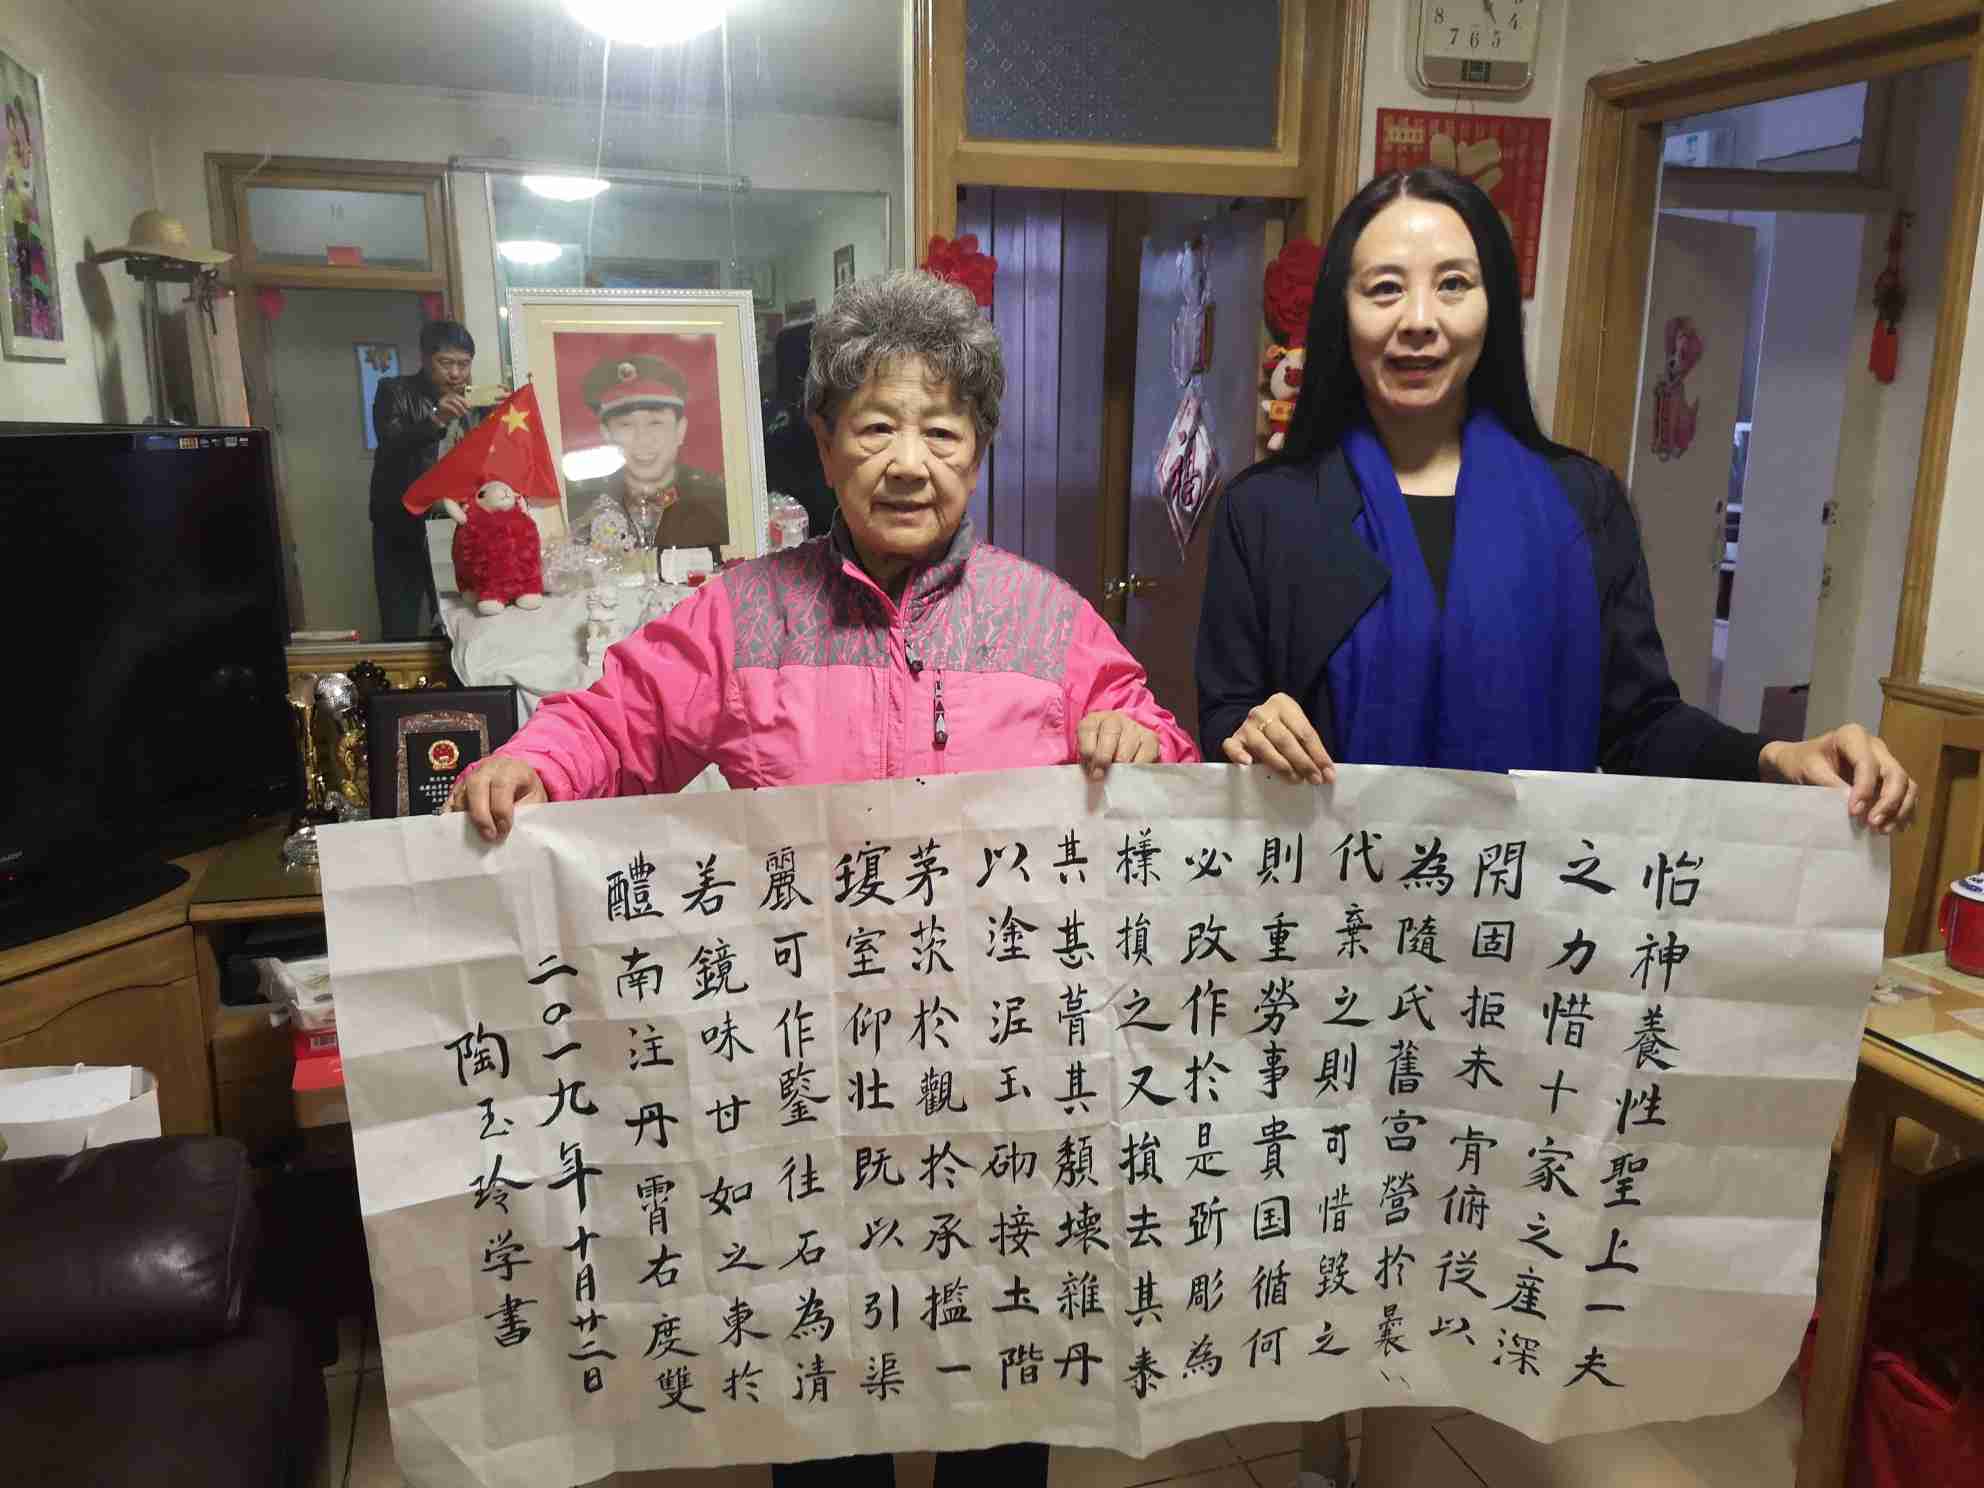 怡神養性聖上一夫
之力惜十家之産深
閇固拒未肯俯従以
為隨氏舊宮營於曩〃
代棄之則可惜毀之
則重勞事貴国循何
必改作於是斲彫為
樸損之又損去其泰
其甚葺其頹壞雜丹
以塗泥玉砌接土階
茅茨於觀於承㩜一
瓊室仰壮既以引渠
麗可作鑒往石為清
若鏡味甘如之東於
醴南注丹霄右度雙
二〇一九年十月廿二日
陶玉玲学書
福
8 7 6 5 4